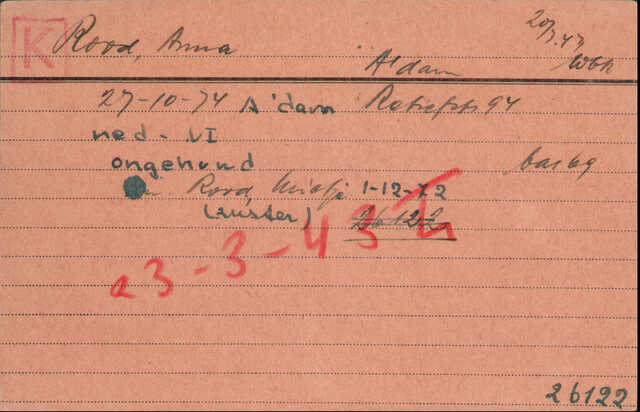 K Rood, Anna
20/3.43
A'dam Wbk
27-10-74 A'dam Retiefstr 94
ned - NI
ongehuwd
Rood, 1-12-72
(zuster) 26122
23-3-43
26122